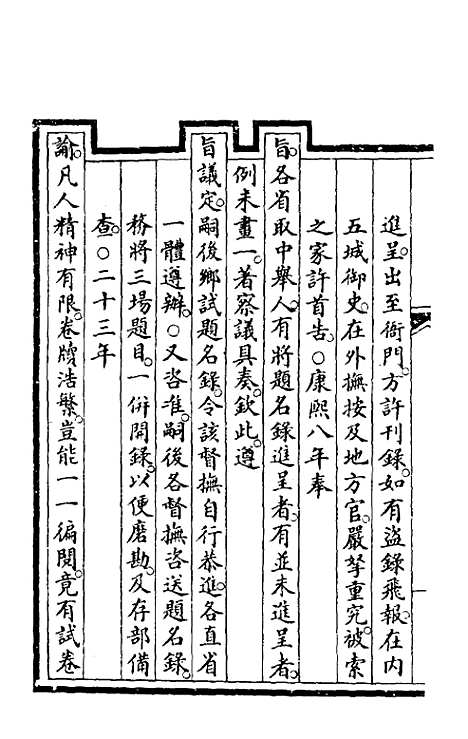 進呈出至衙門方許刊錄如有盜錄飛報在内
五城御史在外撫按及地方官嚴拏重究被索
之家許首告○康熙八年奉
旨各省取中舉人有將題名錄進呈者有並未進呈者
例未畫一著察議具奏欽此遵
旨議定嗣後鄉試題名錄令該督撫自行恭進各直省
一體遵辦○又咨准嗣後各督撫咨送題名錄
務將三場題目一併開錄以便磨勘及存部備
查○二十三年
諭凡人精神有限卷牘浩繁豈能一一徧閱竟有試卷